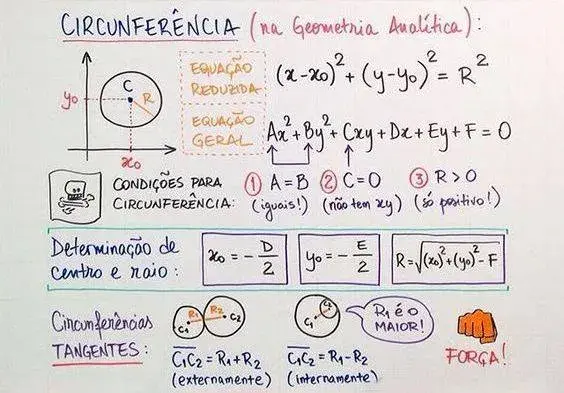 CIRCUNFERÊNCIA (na Geometria Analítica):
C
R
y₀
x₀
EQUAÇÃO REDUZIDA
(x-x₀)² + (y-y₀)² = R²
EQUAÇÃO GERAL
Ax² + By² + Cxy + Dx + Ey + F = 0
CONDIÇÕES PARA CIRCUNFERÊNCIA:
① A = B (iguais!)
② C = 0 (não tem xy)
③ R > 0 (só positivo!)
Determinação de centro e raio:
x₀ = - D/2
y₀ = - E/2
R = √(x₀)² + (y₀)² - F
Circunferências TANGENTES:
R₁
R₂
C₁
C₂
C₁C₂ = R₁ + R₂
(externamente)
C₂
C₁
R₁ é o MAIOR!
C₁C₂ = R₁ - R₂
(internamente)
FORÇA!